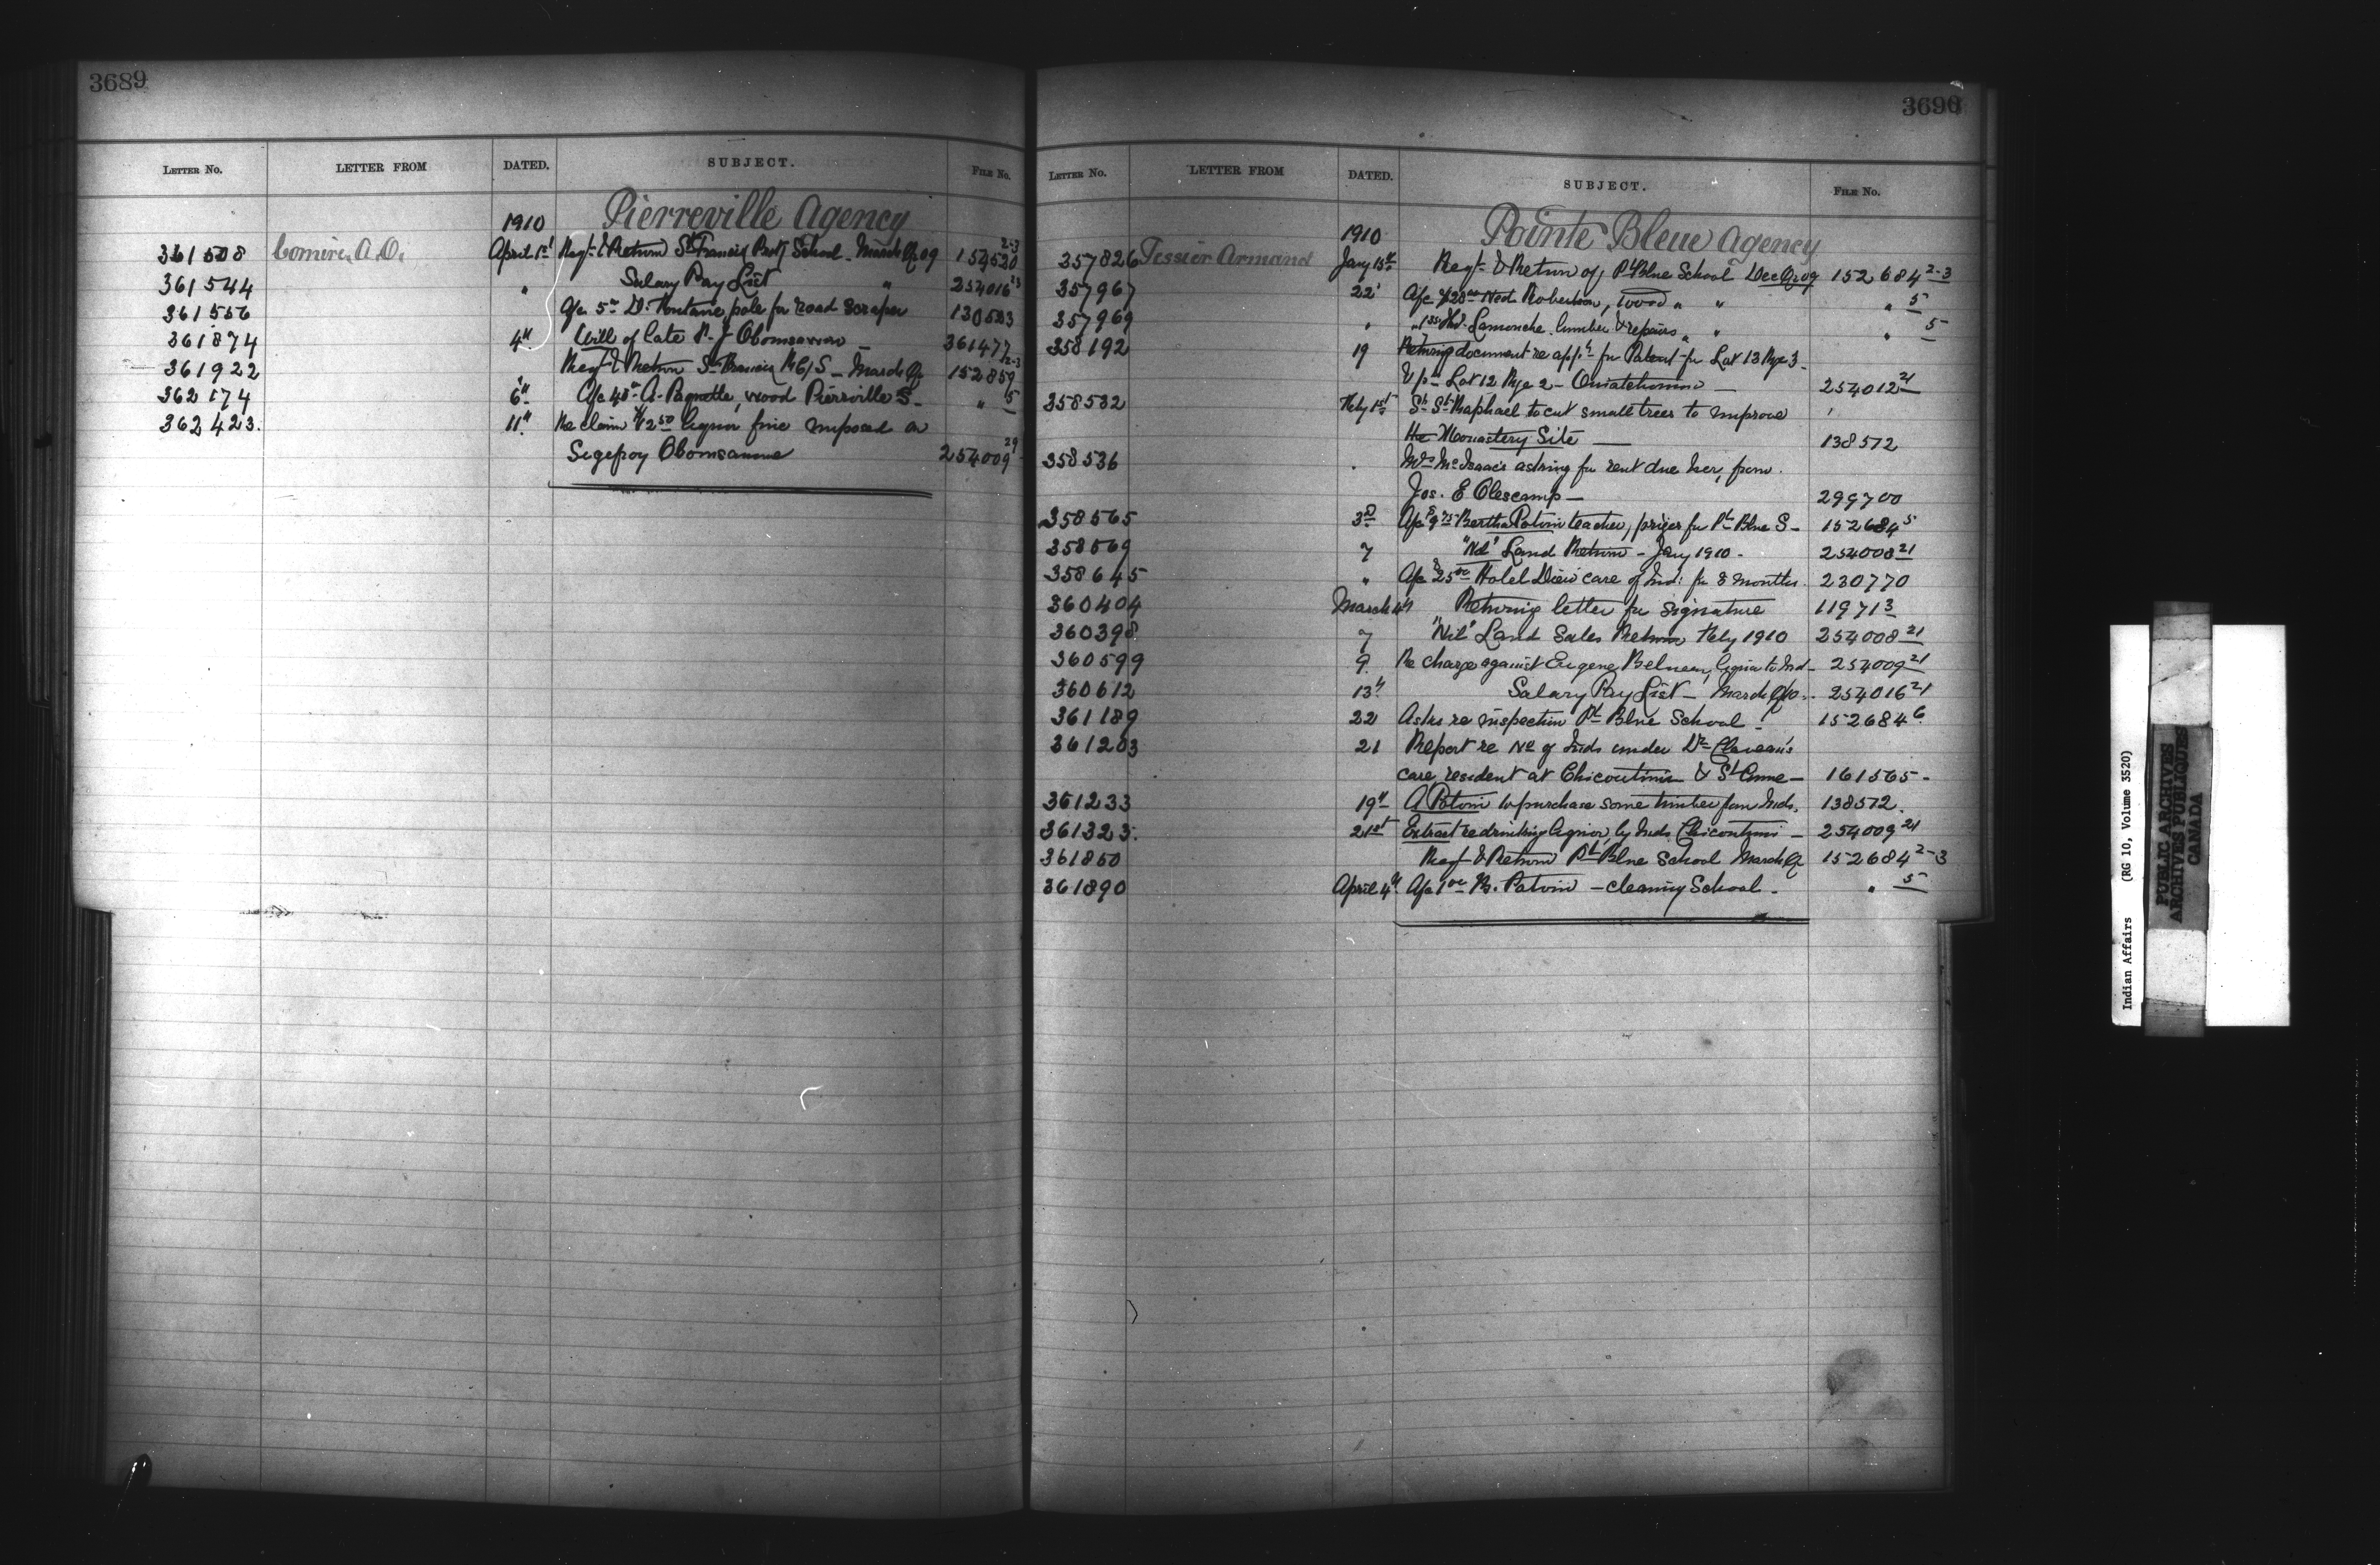 3689
LETTER No. LETTER FROM DATED. SUBJECT. FILE No.
1910 Pierreville Agency
361508 Comire, A.O. April 1st Regt & Return St Francis Prot School - March Qr 09 154520 2-3
361544 " Salary Pay List " 254016 23
361556 a/c 5 00 D. Fontaine, pole for road scraper 130533
361874 4th Will of late P. J Obomsawin - 361477
361922 Regt & Return St Francis RC/S - March Qr 152859 2-3
362174 6th A/c 40 00 A. Paquette, wood Pierreville S - " 5
362423. 11th Re claim $12 50 liquor fine imposed on
Sigefroy Obomsawine 254009 29
3690
LETTER No. LETTER FROM DATED. SUBJECT. FILE No.
1910 Pointe Bleue Agency
357826 Tessier Armand Jany 15th Regt & Return of Pt Blue School Dec Qr 09 152684 2-3
357967 22 A/c $28 00 Ned Robertson, wood " " " 5
357969 " Lamonche. lumber & repairs " " " 5
358192 19 Returning document re appn for Patent for Lot 13 Rge 3 -
Lot 12 Rge 2 - Ouiatchouan - 254012 21
358532 Feby 1st St Raphael to cut small trees to improve
the Monastery Site - 138572
358536 " Mrs McIsaac's asking for rent due her, from.
Jos. E Clescamp - 299700
358565 3d A/c $9 75 Bertha Potvin teacher, prizes for Pt Blue S - 152684 5
358569 7 "Nil" Land Return - Jany 1910 - 254008 21
358645 " A/c $25 00 Hotel Dieu care of Ind: for 8 months. 230770
360404 March 4th Returning letter for signature 119713
360398 7 "Nil" Land Sales Return Feby 1910 254008 21
360599 9. Re charge against Eugene Belneau, liquor to Ind - 254009 21
360612 13th Salary Pay List - March Qr 10 - 254016 21
361189 22 Asks re inspection Pt Blue School - 152684 6
361203 21 Report re No of Inds under Dr Claveau's
care, resident at Chicoutimi & St Anne - 161565 -
361233 19th A Potvin to purchase some timber from Inds. 138572.
361323. 21st Extract re drinking liquor, by Inds Chicoutimi - 254009 21
361850 Regt & Return Pt Blue School March Qr 152684 2-3
361890 April 4th A/c 1 00 B. Potvin - cleaning School - " 5
Indian Affairs (RG 10, Volume 3520)
PUBLIC ARCHIVES
ARCHIVES PUBLIQUES
CANADA